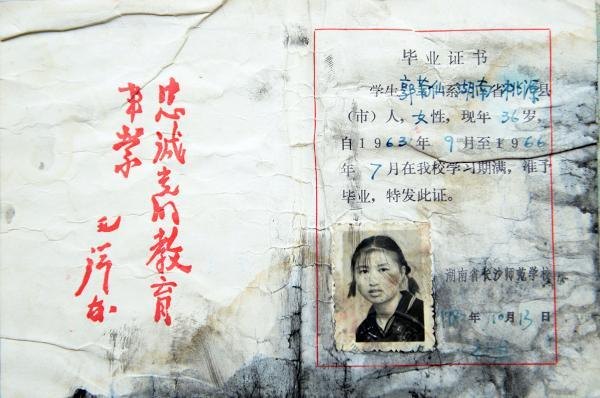 忠诚党的教育
事业
毛泽东
毕业证书
学生郭菊仙系湖南省桃源县
(市)人，女性，现年36岁，
自1963年9月至1966
年7月在我校学习期满，准予
毕业，特发此证。
湖南省长沙师范学校
年10月13日